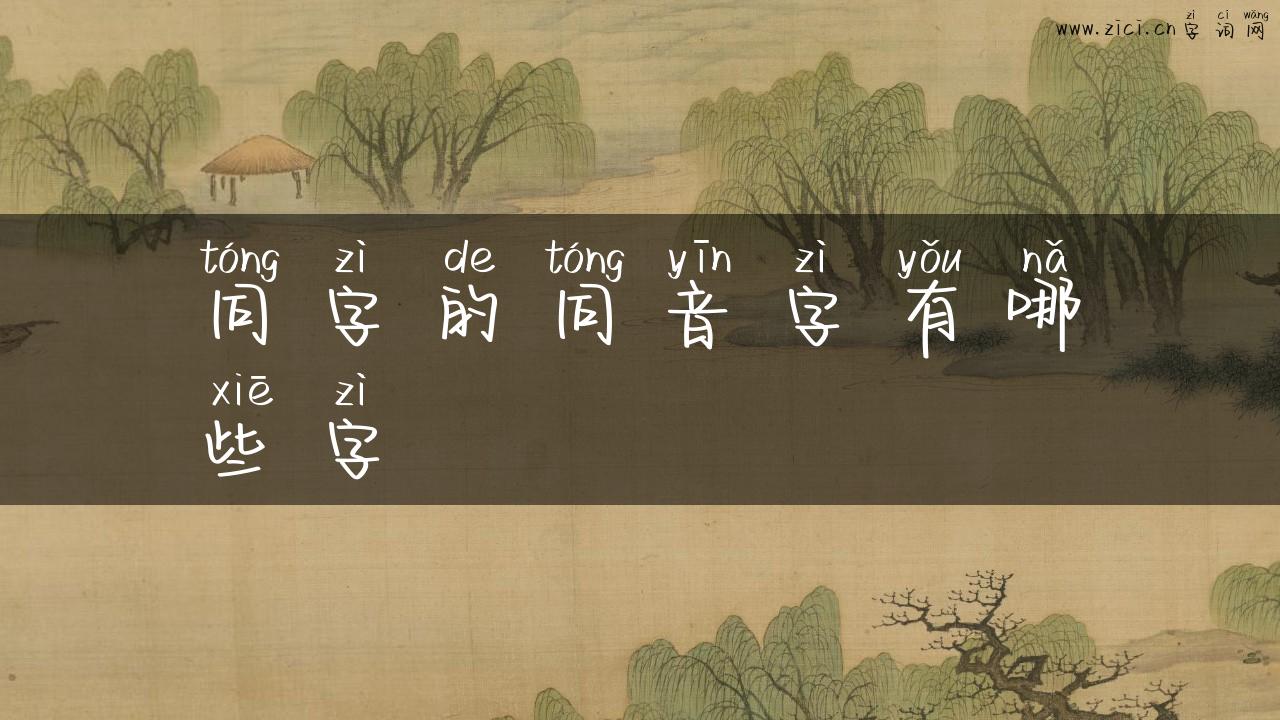 zì cí wǎng
www.zici.cn 字 词 网
tóng zì de tóng yīn zì yǒu nǎ
同 字 的 同 音 字 有 哪
xiē zì
些 字